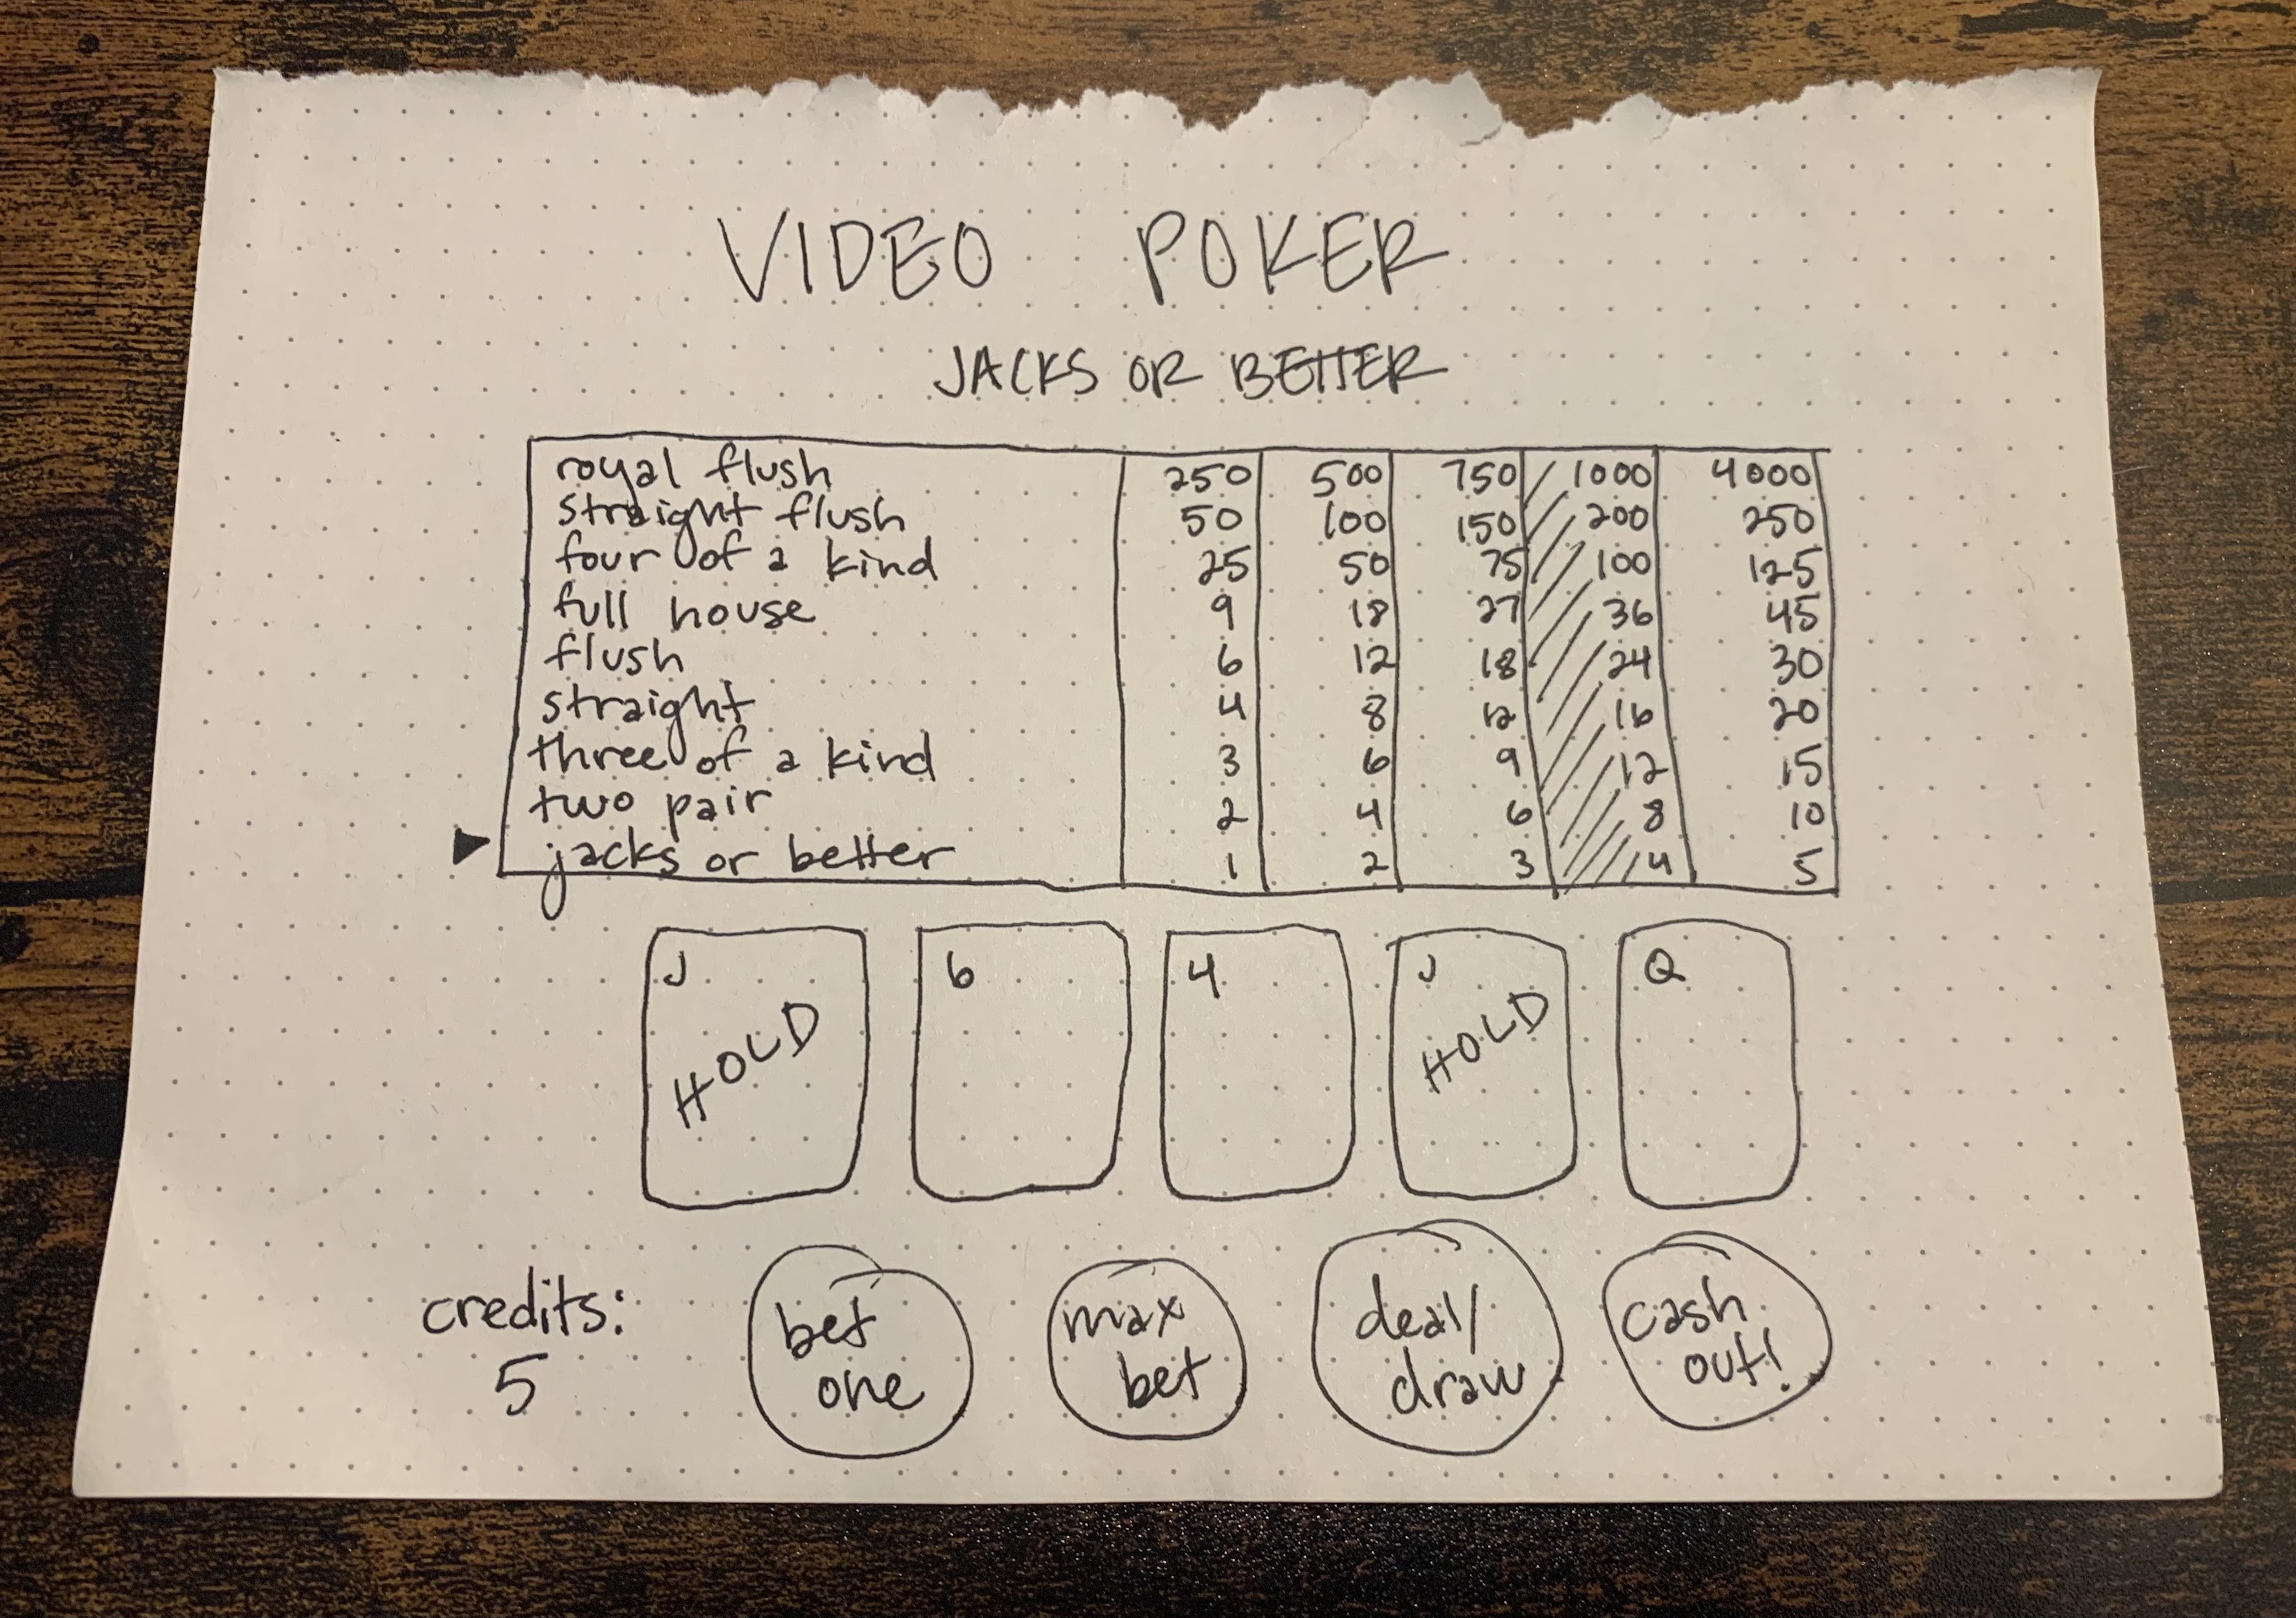 VIDEO POKER
JACKS OR BETTER
royal flush 250 500 750 1000 4000
straight flush 50 100 150 200 250
four of a kind 25 50 75 100 125
full house 9 18 27 36 45
flush 6 12 18 24 30
straight 4 8 12 16 20
three of a kind 3 6 9 12 15
two pair 2 4 6 8 10
jacks or better 1 2 3 4 5
J 6 4 J Q
HOLD HOLD
credits:
5
bet
one
max
bet
deal/
draw
cash
out!